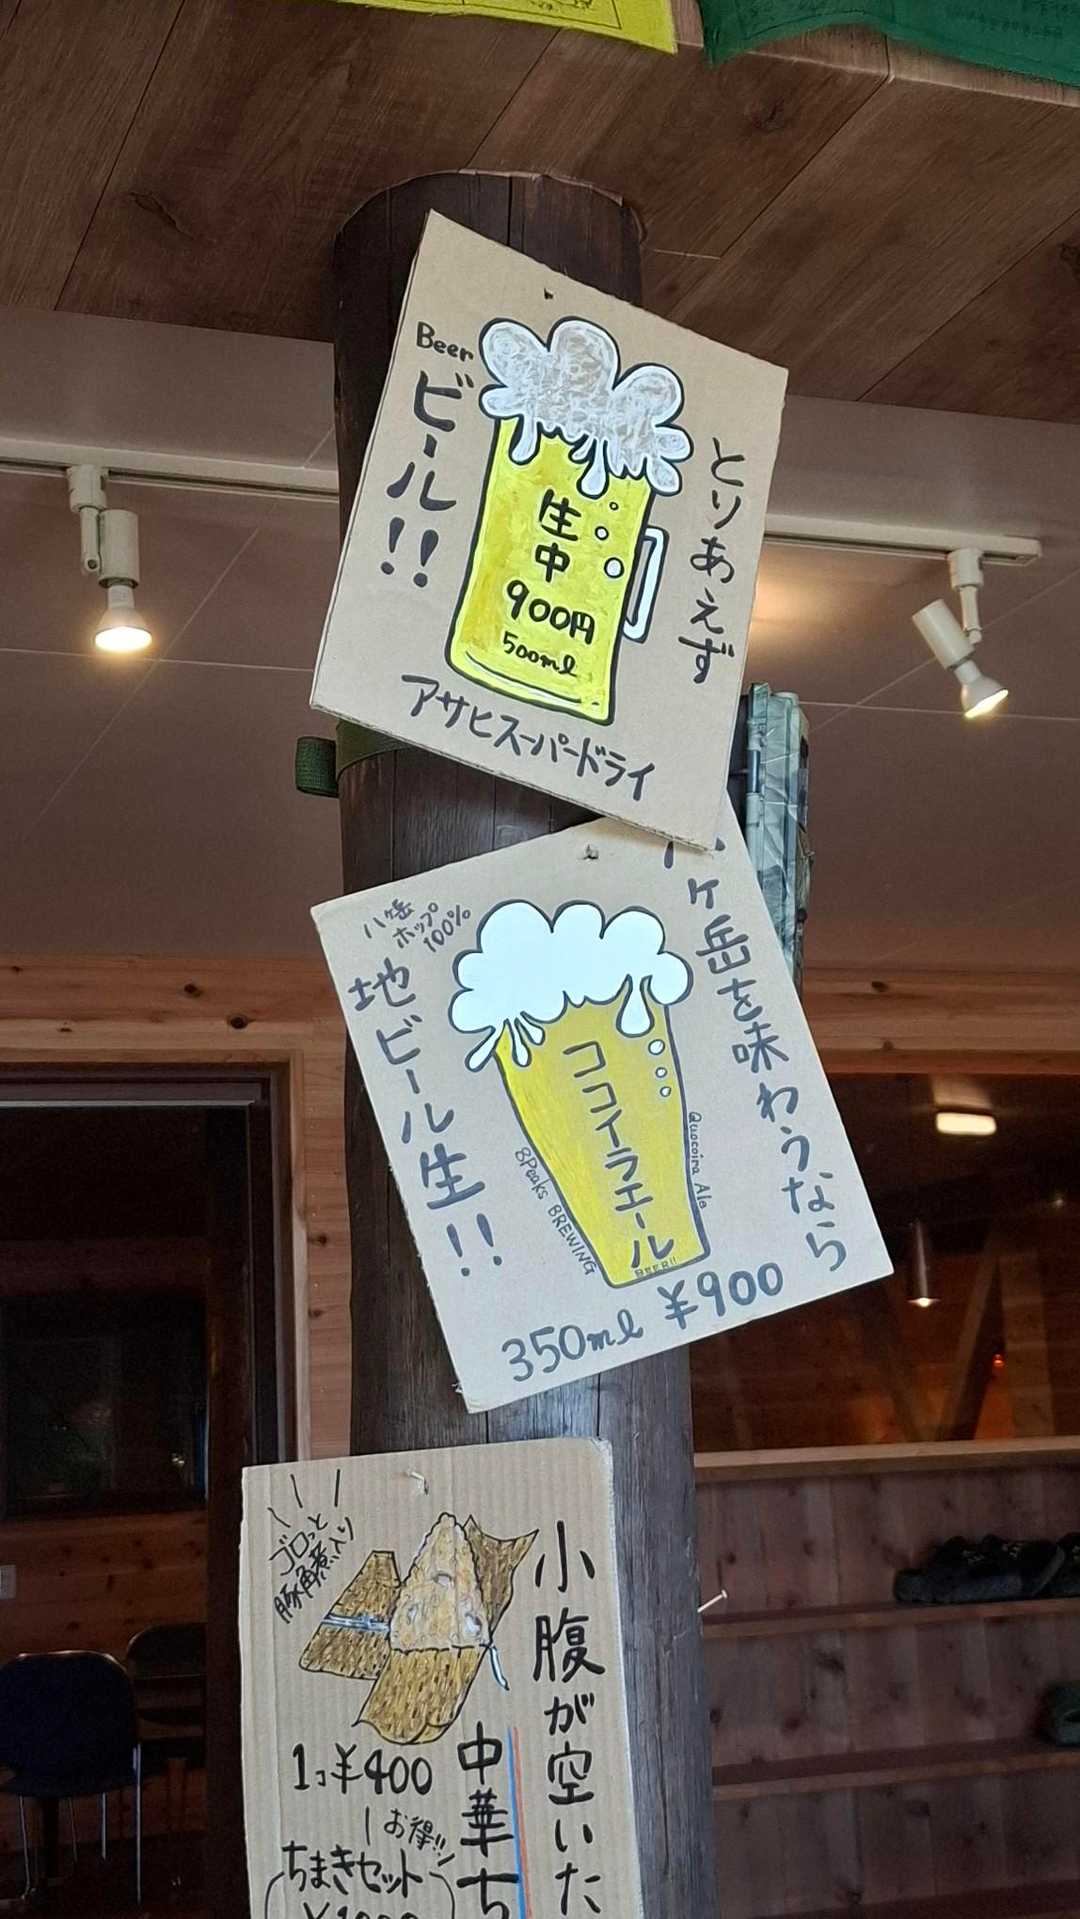 とりあえず
Beer
ビール!!
生
中
900円
500ml
アサヒスーパードライ
ヶ岳を味わうなら
八ヶ岳
ホップ
100%
地ビール生!!
ココイラエール
Quocoira Ale
8Peaks BREWING
BEER!!
350ml ¥900
小腹が空いた
中華ち
ゴロっと
豚角煮入り
1コ¥400
お得!!
ちまきセット